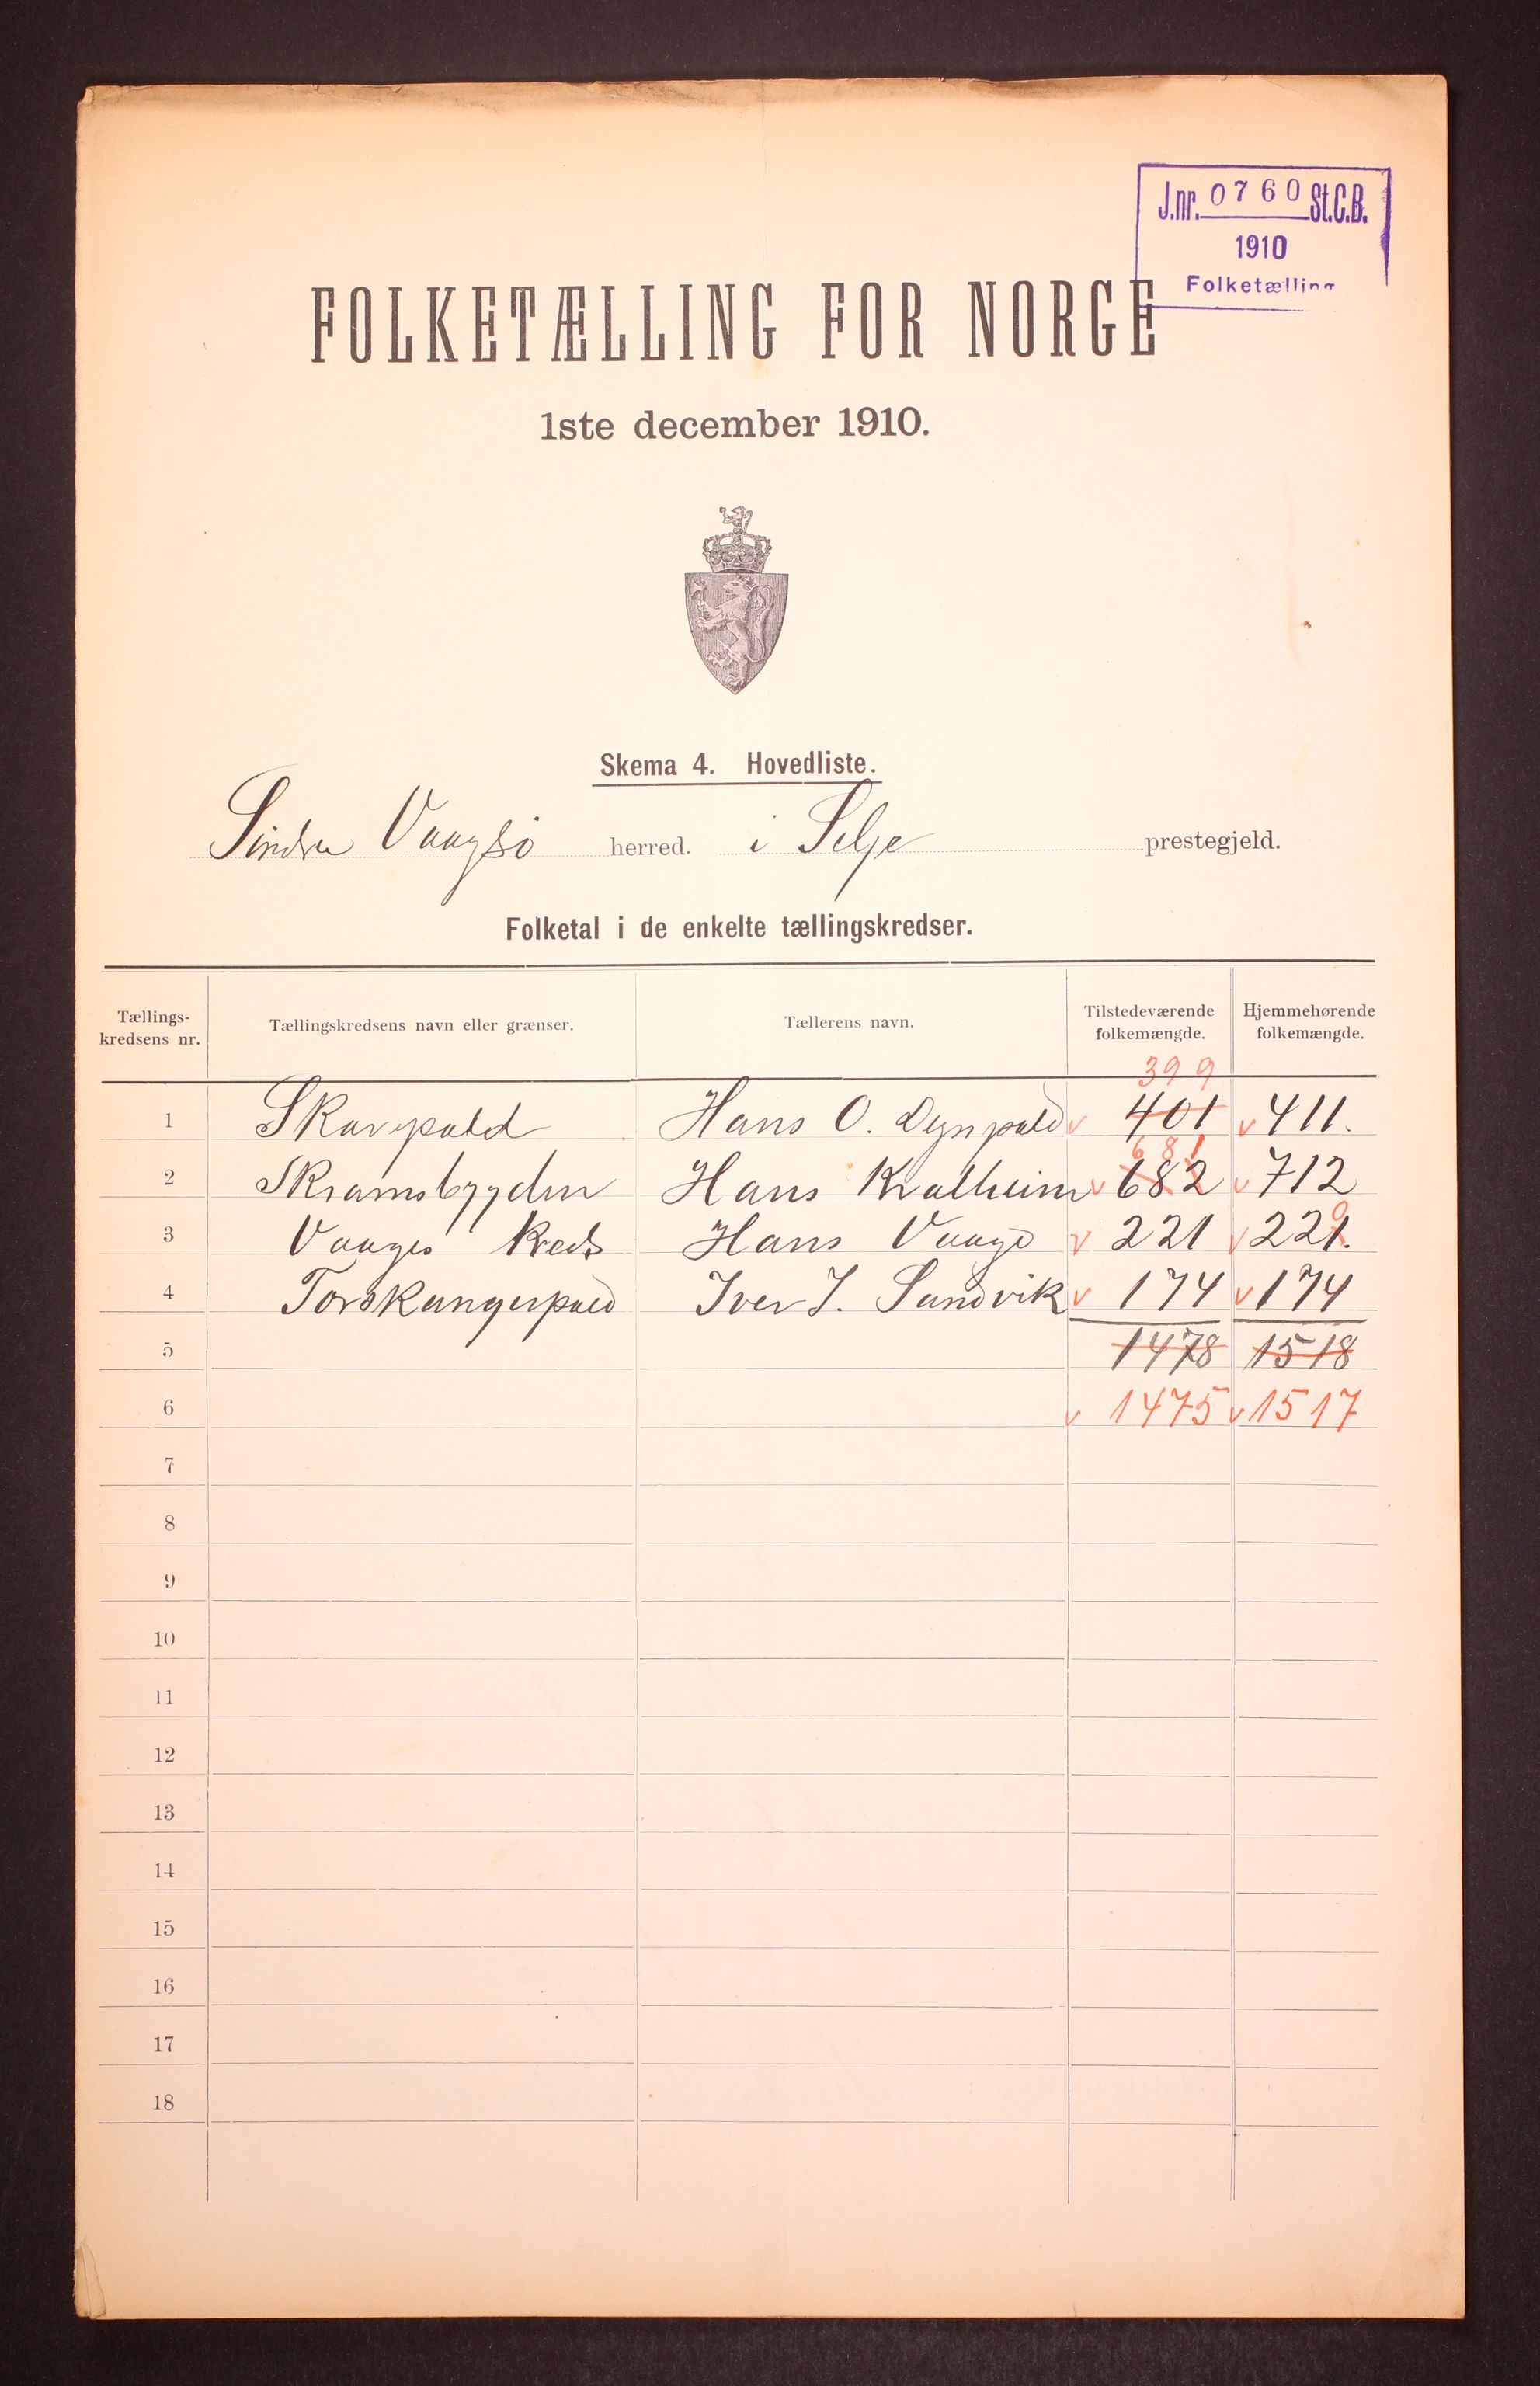 J.nr. 0760 St.C.B.
1910
Folketælling
FOLKETÆLLING FOR NORGE
1ste december 1910.
Skema 4. Hovedliste.
Søndre Vaagsø herred. i Selje prestegjeld.
Folketal i de enkelte tællingskredser.
Tællings-kredsens nr. Tællingskredsens navn eller grænser. Tællerens navn. Tilstedeværende folkemængde. Hjemmehørende folkemængde.
399
1 Skavøpold Hans O. Degnpold 401 411.
681
2 Skramsbygden Hans Kvalheim 682 712
0
3 Vaages Kreds Hans Vaage 221 221.
4 Torskangerpold Iver J. Sandvik 174 174
5 1478 1518
6 1475 1517
7
8
9
10
11
12
13
14
15
16
17
18